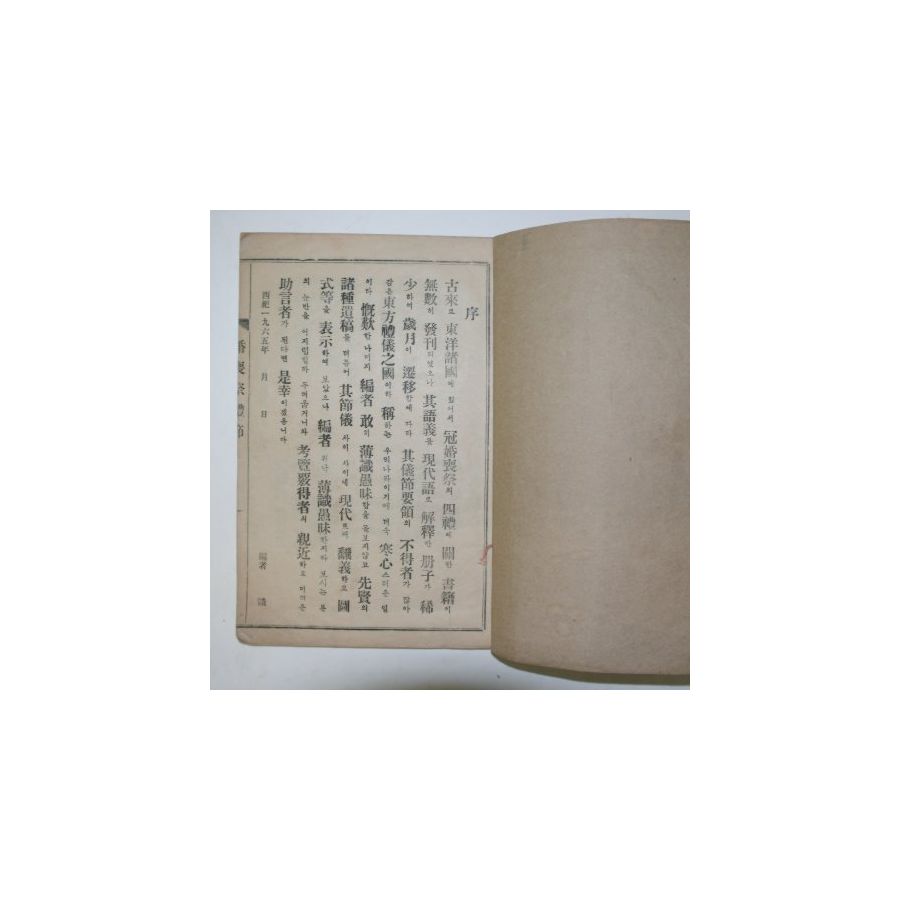 序
古來로 東洋諸國에 있어서 冠婚喪祭의 四禮에 關한 書籍이
無數히 發刊되었으나 其語義를 現代語로 解釋한 册子가 稀
少하여 歲月이 遷移함에 따라 其儀節要領의 不得者가 많아
같은 東方禮儀之國이라 稱하는 우리나라이기에 더욱 寒心스러운 일
이다 慨歎한 나머지 編者 敢히 薄識愚昧함을 돌보지않고 先賢의
諸種遺稿를 더듬어 其節儀 사이 사이에 現代 翻義하고 圖
式等을 表示하여 보았으나 編者 워낙 薄識愚昧한지라 보시는 분
의 눈만을 어지럽힐까 두려웁거니와 考覽覈得者의 親近하고 미더운
助言者가 된다면 是幸이겠읍니다
西紀一九六五年 月 日
編者 識
婚喪祭禮節